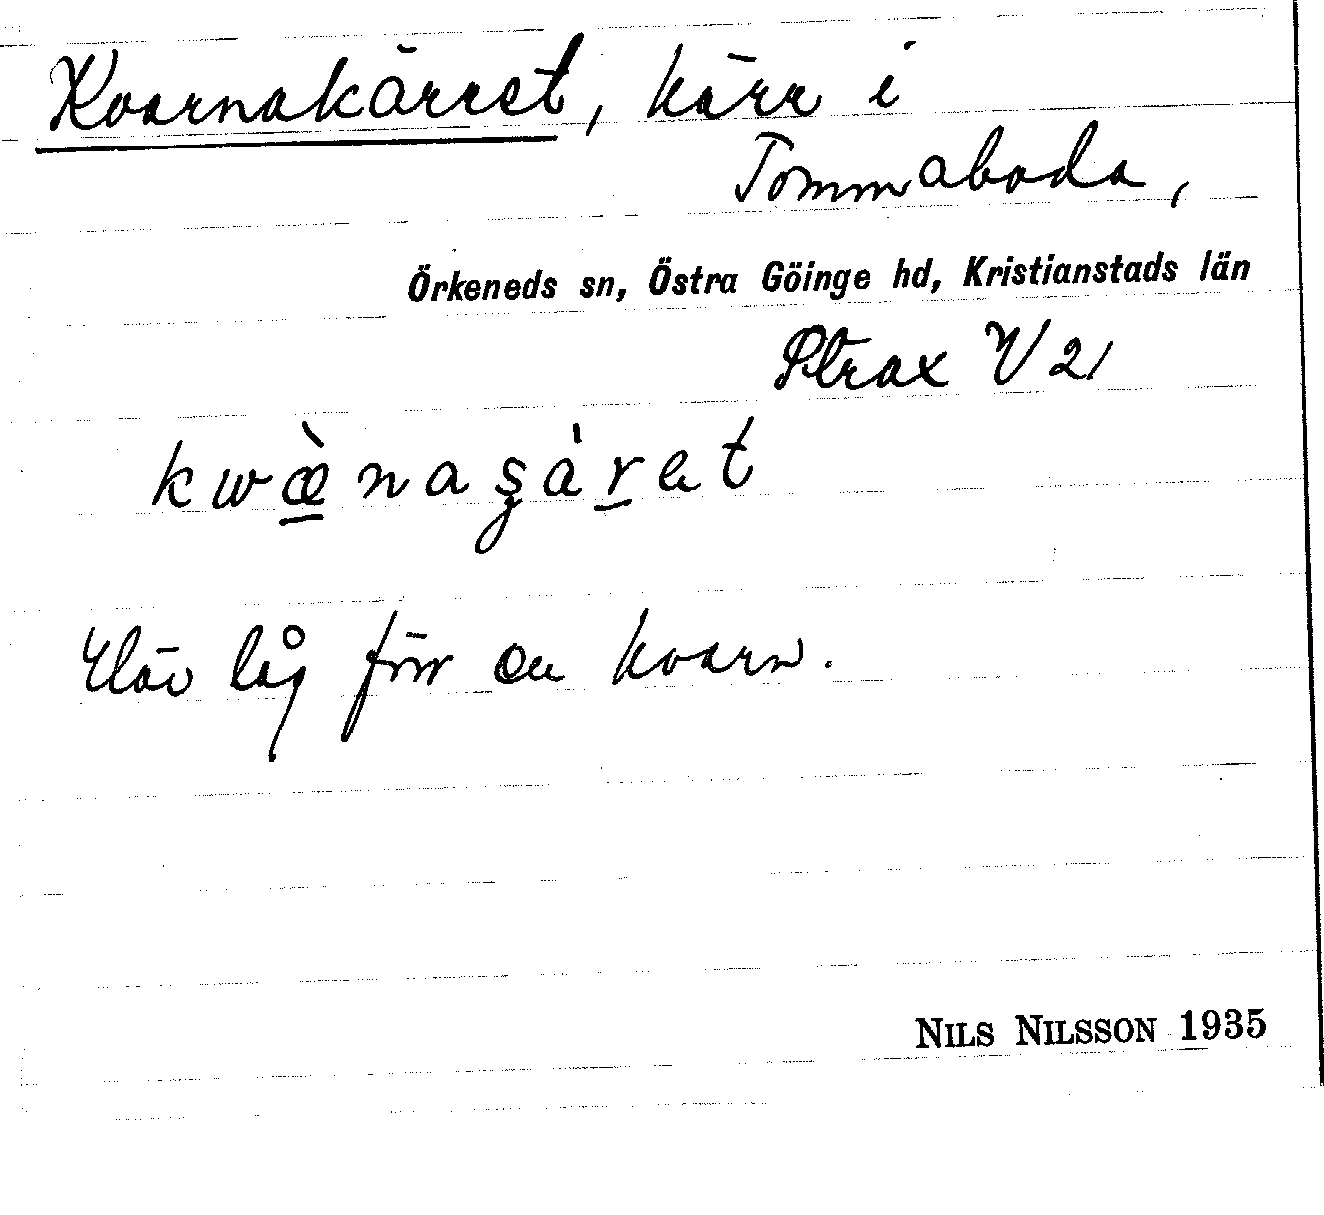 Kvarnakärret, kärr i
Tommaboda,
Örkeneds sn, Östra Göinge hd, Kristianstads län
Strax V 21
Här låg förr en kvarn.
NILS NILSSON 1935